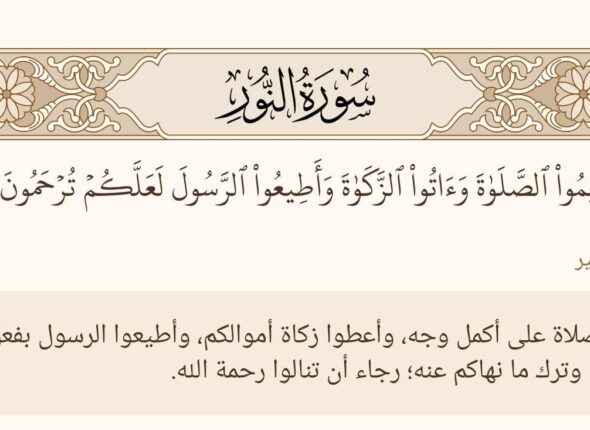 سُورَةُ النُّورِ
يمُوا۟ ٱلصَّلَوٰةَ وَءَاتُوا۟ ٱلزَّكَوٰةَ وَأَطِيعُوا۟ ٱلرَّسُولَ لَعَلَّكُمْ تُرْحَمُونَ
ير
صلاة على أكمل وجه، وأعطوا زكاة أموالكم، وأطيعوا الرسول بفعل
وترك ما نهاكم عنه؛ رجاء أن تنالوا رحمة الله.